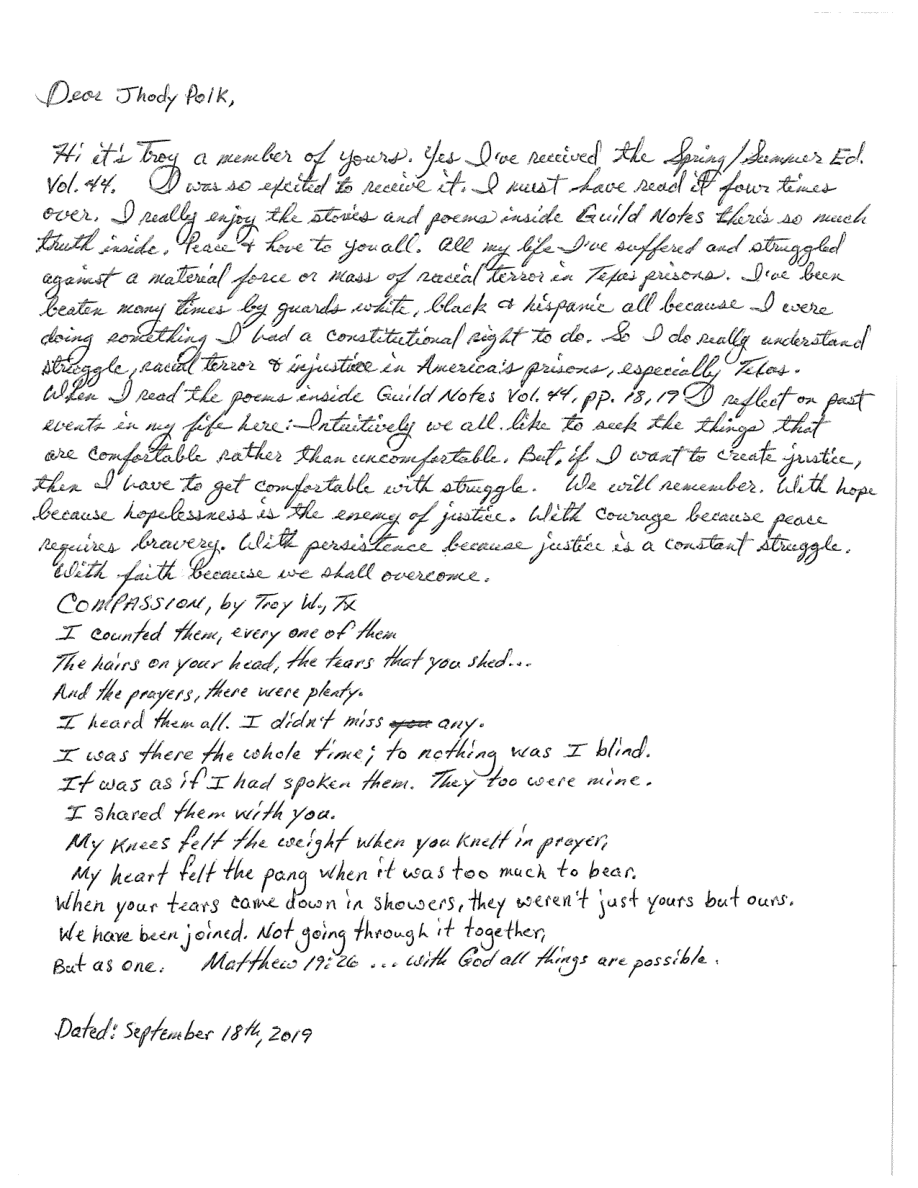 Dear Jhody Polk,
Hi it's Troy a member of yours. Yes I've received the Spring/Summer Ed.
Vol. 44. I was so excited to receive it. I must have read it four times
over. I really enjoy the stories and poems inside Guild Notes there's so much
truth inside. Peace & love to you all. All my life I've suffered and struggled
against a material force or mass of racial terror in Texas prisons. I've been
beaten many times by guards white, black & hispanic all because I were
doing something I had a constitutional right to do. So I do really understand
struggle, racial terror & injustice in America's prisons, especially Texas.
When I read the poems inside Guild Notes Vol. 44, pp. 18, 19 I reflect on past
events in my life here:-Intuitively we all like to seek the things that
are comfortable rather than uncomfortable. But, if I want to create justice,
then I have to get comfortable with struggle. We will remember. With hope
because hopelessness is the enemy of justice. With courage because peace
requires bravery. With persistence because justice is a constant struggle.
With faith because we shall overcome.
COMPASSION, by Troy W., Tx
I counted them, every one of them
The hairs on your head, the tears that you shed...
And the prayers, there were plenty.
I heard them all. I didn't miss you any.
I was there the whole time; to nothing was I blind.
It was as if I had spoken them. They too were mine.
I shared them with you.
My knees felt the weight when you knelt in prayer,
My heart felt the pang when it was too much to bear.
When your tears came down in showers, they weren't just yours but ours.
We have been joined. Not going through it together,
But as one. Matthew 19:26 ... with God all things are possible.
Dated: September 18th, 2019